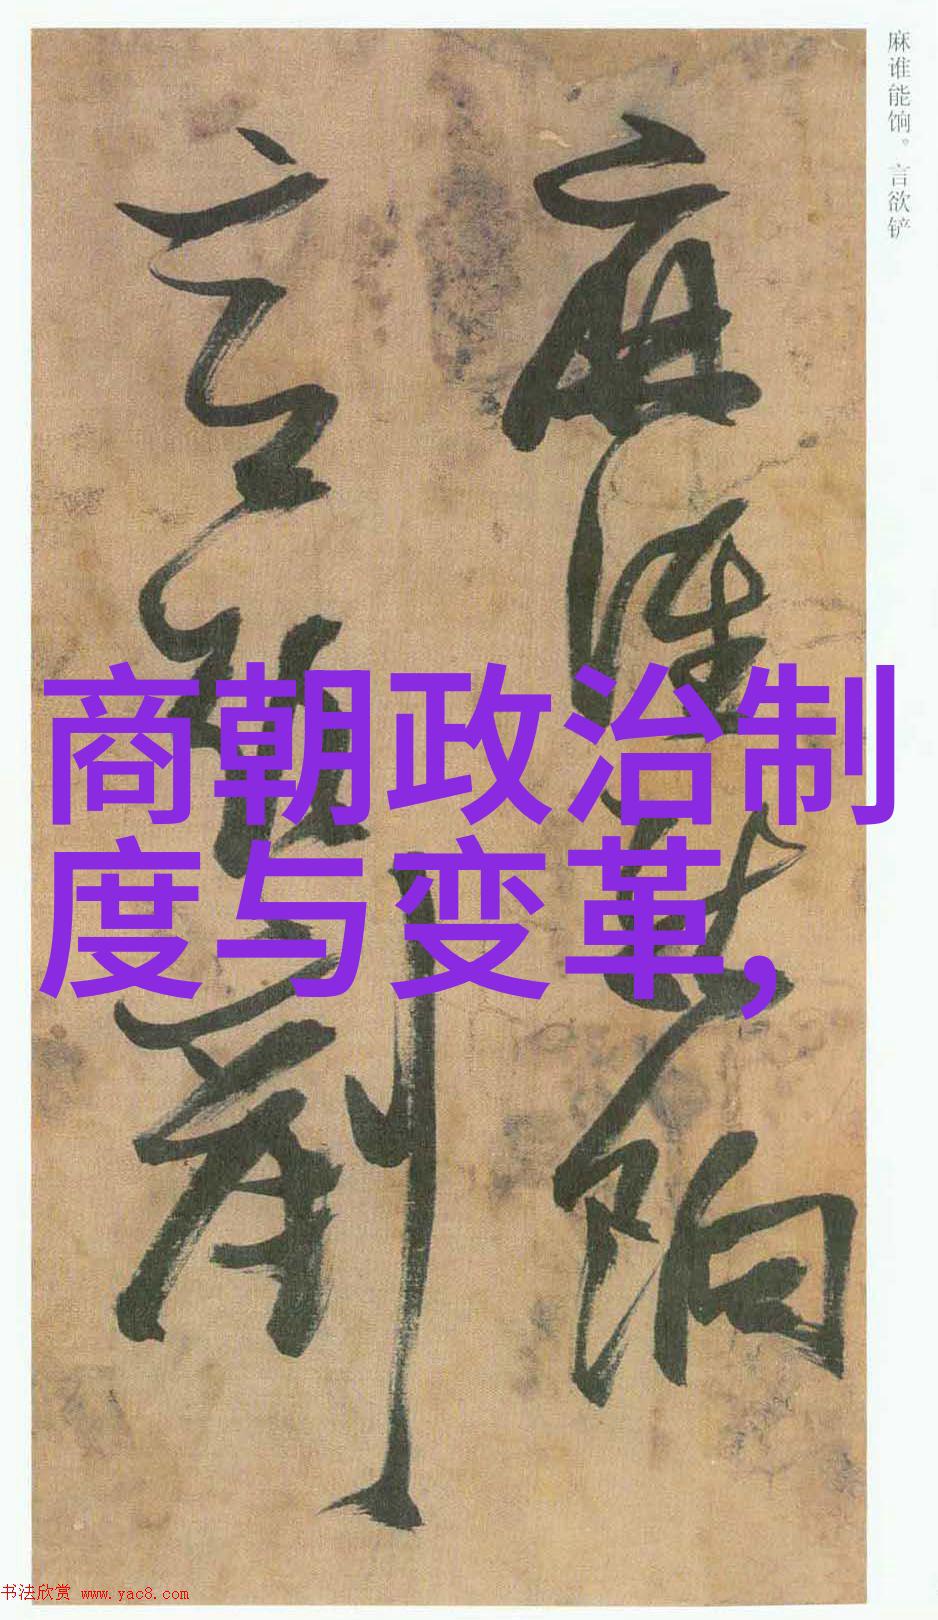 麻谁能饷。言欲铲
麻谁能饷
言欲铲
商朝政治制
度与变革,
书法欣赏 www.yac8.com